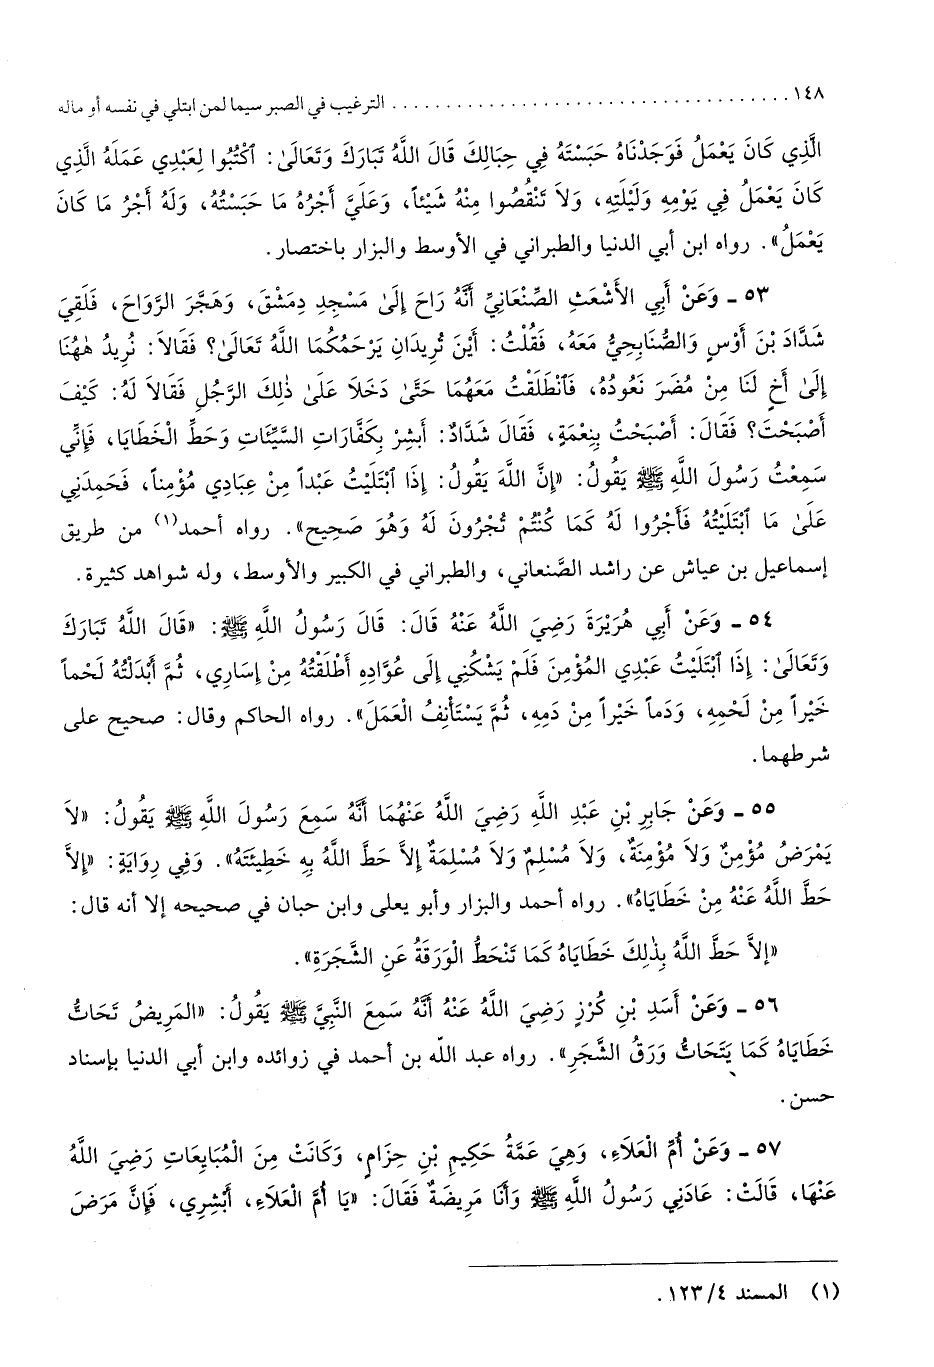 ١٤٨ .................................... الترغيب في الصبر سيما لمن ابتلي في نفسه أو ماله
الَّذِي كَانَ يَعْمَلُ فَوَجَدْنَاهُ حَبَسْتَهُ فِي حِبَالِكَ قَالَ اللَّهُ تَبَارَكَ وَتَعَالَىٰ: ٱكْتُبُوا لِعَبْدِي عَمَلَهُ الَّذِي
كَانَ يَعْمَلُ فِي يَوْمِهِ وَلَيْلَتِهِ، وَلاَ تَنْقُصُوا مِنْهُ شَيْئاً، وَعَلَيَّ أَجْرُهُ مَا حَبَسْتُهُ، وَلَهُ أَجْرُ مَا كَانَ
يَعْمَلُ». رواه ابن أبي الدنيا والطبراني في الأوسط والبزار باختصار.
٥٣ ـ وَعَنْ أَبِي الأَشْعَثِ الصَّنْعَانِيِّ أَنَّهُ رَاحَ إِلَىٰ مَسْجِدِ دِمَشْقَ، وَهَجَّرَ الرَّوَاحَ، فَلَقِيَ
شَدَّادَ بْنَ أَوْسٍ وَالصُّنَابِحِيُّ مَعَهُ، فَقُلْتُ: أَيْنَ تُرِيدَانِ يَرْحَمُكُمَا اللَّهُ تَعَالَىٰ؟ فَقَالاَ: نُرِيدُ هٰهُنَا
إِلَىٰ أَخٍ لَنَا مِنْ مُضَرَ نَعُودُهُ، فَٱنْطَلَقْتُ مَعَهُمَا حَتَّىٰ دَخَلاَ عَلَىٰ ذٰلِكَ الرَّجُلِ فَقَالاَ لَهُ: كَيْفَ
أَصْبَحْتَ؟ فَقَالَ: أَصْبَحْتُ بِنِعْمَةٍ، فَقَالَ شَدَّادٌ: أَبشِرْ بِكَفَّارَاتِ السَّيِّئَاتِ وَحَطِّ الْخَطَايَا، فَإِنِّي
سَمِعْتُ رَسُولَ اللَّهِ ﷺ يَقُولُ: «إِنَّ اللَّهَ يَقُولُ: إِذَا ٱبْتَلَيْتُ عَبْداً مِنْ عِبَادِي مُؤْمِناً، فَحَمِدَنِي
عَلَىٰ مَا ٱبْتَلَيْتُهُ فَأَجْرُوا لَهُ كَمَا كُنْتُمْ تُجْرُونَ لَهُ وَهُوَ صَحِيح». رواه أحمد(١) من طريق
إسماعيل بن عياش عن راشد الصَّنعاني، والطبراني في الكبير والأوسط، وله شواهد كثيرة.
٥٤ ـ وَعَنْ أَبِي هُرَيْرَةَ رَضِيَ اللَّهُ عَنْهُ قَالَ: قَالَ رَسُولُ اللَّهِ ﷺ: «قَالَ اللَّهُ تَبَارَكَ
وَتَعَالَىٰ: إِذَا ٱبْتَلَيْتُ عَبْدِي المُؤْمِنَ فَلَمْ يَشْكُنِي إِلَى عُوَّادِهِ أَطْلَقْتُهُ مِنْ إِسَارِي، ثُمَّ أَبْدَلْتُهُ لَحْماً
خَيْراً مِنْ لَحْمِهِ، وَدَماً خَيْراً مِنْ دَمِهِ، ثُمَّ يَسْتَأْنِفُ الْعَمَلَ». رواه الحاكم وقال: صحيح على
شرطهما.
٥٥ ـ وَعَنْ جَابِرِ بْنِ عَبْدِ اللَّهِ رَضِيَ اللَّهُ عَنْهُمَا أَنَّهُ سَمِعَ رَسُولَ اللَّهِ ﷺ يَقُولُ: «لاَ
يَمْرَضُ مُؤْمِنٌ وَلاَ مُؤْمِنَةٌ، وَلاَ مُسْلِمٌ وَلاَ مُسْلِمَةٌ إِلاَّ حَطَّ اللَّهُ بِهِ خَطِيئَتَهُ». وَفِي رِوَايَةٍ: «إِلاَّ
حَطَّ اللَّهُ عَنْهُ مِنْ خَطَايَاهُ». رواه أحمد والبزار وأبو يعلى وابن حبان في صحيحه إلا أنه قال:
«إِلاَّ حَطَّ اللَّهُ بِذٰلِكَ خَطَايَاهُ كَمَا تَنْحَطُّ الْوَرَقَةُ عَنِ الشَّجَرَةِ».
٥٦ ـ وَعَنْ أَسَدِ بْنِ كُرْزٍ رَضِيَ اللَّهُ عَنْهُ أَنَّهُ سَمِعَ النَّبِيَّ ﷺ يَقُولُ: «المَرِيضُ تَحَاتُّ
خَطَايَاهُ كَمَا يَتَحَاتُّ وَرَقُ الشَّجَرِ». رواه عبد اللّه بن أحمد في زوائده وابن أبي الدنيا بإسناد
حسن.
٥٧ ـ وَعَنْ أُمِّ الْعَلاَءِ، وَهِيَ عَمَّةُ حَكِيمِ بْنِ حِزَامٍ، وَكَانَتْ مِنَ الْمُبَايِعَاتِ رَضِيَ اللَّهُ
عَنْهَا، قَالَتْ: عَادَنِي رَسُولُ اللَّهِ ﷺ وَأَنَا مَرِيضَةٌ فَقَالَ: «يَا أُمَّ الْعَلاَءِ، أَبْشِرِي، فَإِنَّ مَرَضَ
(١) المسند ١٢٣/٤.